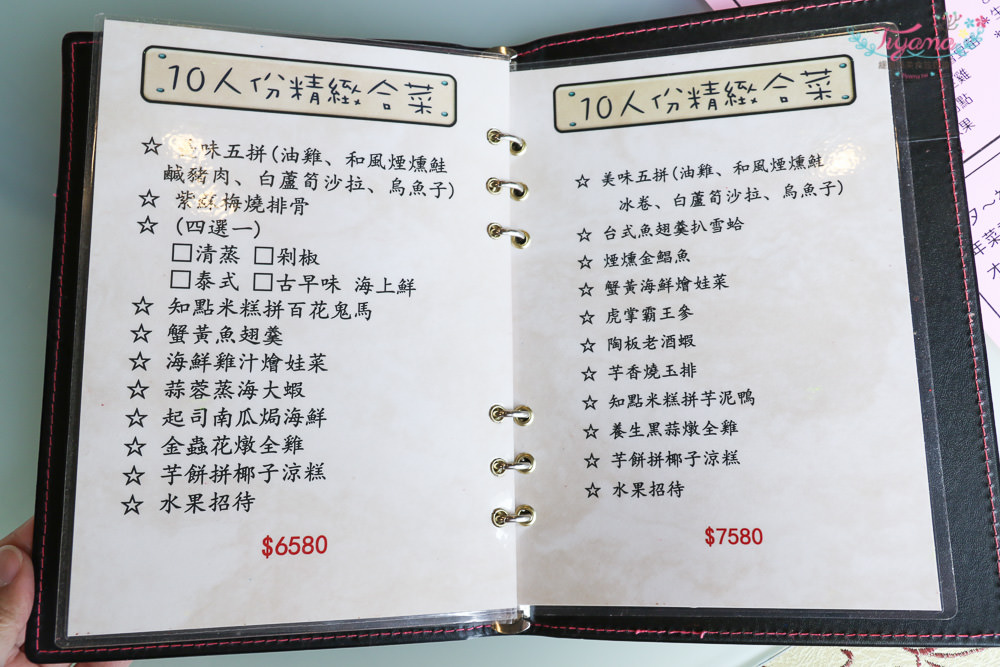 10人份精緻合菜
☆ 味五拼(油雞、和風煙燻鮭
鹹豬肉、白蘆筍沙拉、烏魚子)
☆ 紫蘇梅燒排骨
☆ (四選一)
□清蒸 □剁椒
□泰式 □古早味 海上鮮
☆ 知點米糕拼百花鬼馬
☆ 蟹黃魚翅羹
☆ 海鮮雞汁燴娃菜
☆ 蒜蓉蒸海大蝦
☆ 起司南瓜焗海鮮
☆ 金蟲花燉全雞
☆ 芋餅拼椰子涼糕
☆ 水果招待
$6580
10人份精緻合菜
☆ 美味五拼(油雞、和風煙燻鮭
冰卷、白蘆筍沙拉、烏魚子)
☆ 台式魚翅羹扒雪蛤
☆ 煙燻金鯧魚
☆ 蟹黃海鮮燴娃菜
☆ 虎掌霸王參
☆ 陶板老酒蝦
☆ 芋香燒玉排
☆ 知點米糕拼芋泥鴨
☆ 養生黑蒜燉全雞
☆ 芋餅拼椰子涼糕
☆ 水果招待
$7580
Tiyana